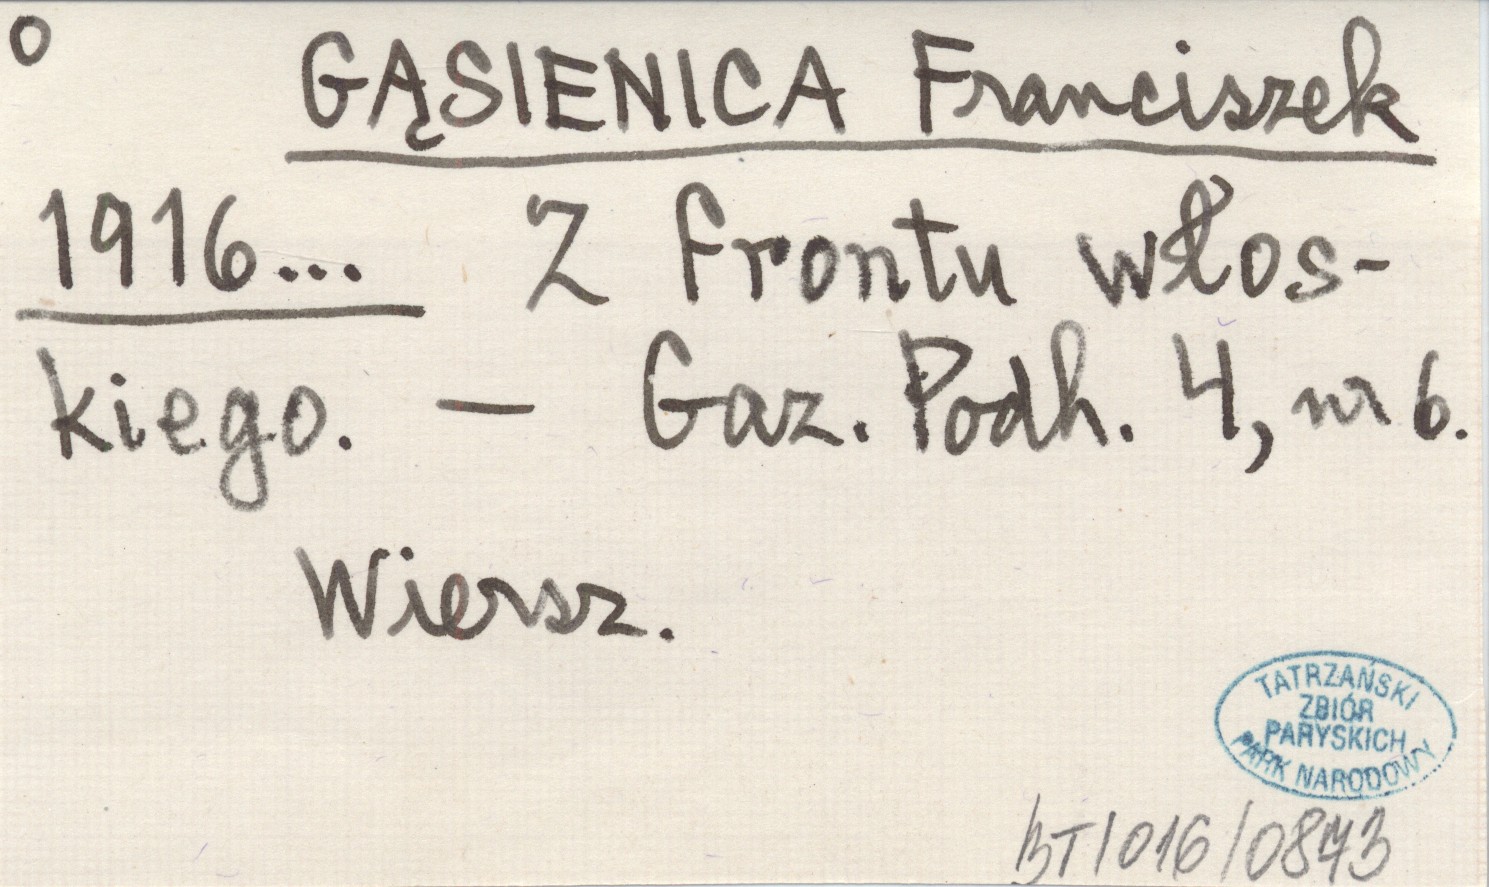 o
GĄSIENICA Franciszek
1916... Z frontu włos-
kiego. — Gaz. Podh. 4, nr 6.
Wiersz.
TATRZAŃSKI
ZBIÓR
PARYSKICH
PARK NARODOWY
BT/016/0873